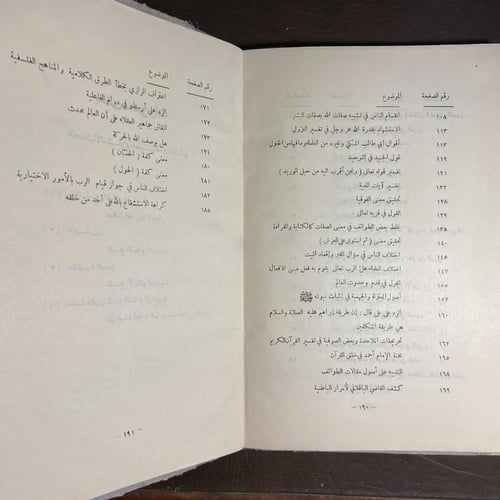 رقم الصفحة الموضوع
١٠٨ انقسام الناس في تشبيه صفات الله بصفات البشر
١١٣ الاستشهاد بقدرة الله عز وجل في تفسير النزول
١١٣ أقوال أبي طالب المكي وغيره من العلماء وما فيها من الحلول
١٢٠ قول الجنيد في التوحيد
١٢٢ تفسير قوله تعالى ( ونحن أقرب اليه من حبل الوريد )
١٢٣ تفسير آيات المعية
١٢٨ تحقيق معنى الفوقية
١٢٩ القول في قربه تعالى
١٣٥ غلط بعض الطوائف في معنى الصفات كالكتابة والقراءة
١٤٠ تحقيق معنى ( ثم استوى على العرش )
١٤٥ اختلاف الناس في سؤال القبر وإقعاد الميت
١٤٧ اختلاف العلماء هل الرب تعالى يقوم به فعل من الافعال
١٥١ القول في قدم وحدوث العالم
١٥٧ أصول المعتزلة والجهمية في إثبات نبوته ﷺ
١٦٠ الرد على على قال : إن طريقة إبراهيم عليه الصلاة والسلام
هي طريقة المتكلمين
١٦٢ تحريفات الملاحدة وبعض الصوفية في تفسير القرآن الكريم
١٦٥ محنة الإمام أحمد في خلق القرآن
١٦٨ التنبيه على أصول مقالات الطوائف
١٦٩ كشف القاضي الباقلاني لأسرار الباطنية
— ١٩٠ —
رقم الصفحة الموضوع
١٧١ اعتراف الرازي بخطأ الطرق الكلامية والمناهج الفلسفية
١٧٢ الرد على أرسطو في دوام الفاعلية
١٧٣ اتفاق جماهير العقلاء على أن العالم محدث
١٧١ هل يوصف الله بالحركة
١٨٠ معنى كلمة ( الحنان )
١٨١ معنى كلمة ( الحول )
١٨٢ اختلاف الناس في جواز قيام الرب بالأمور الاختيارية
١٨٥ كراهة الاستشفاع بالله على أحد من خلقه
— ١٩١ —